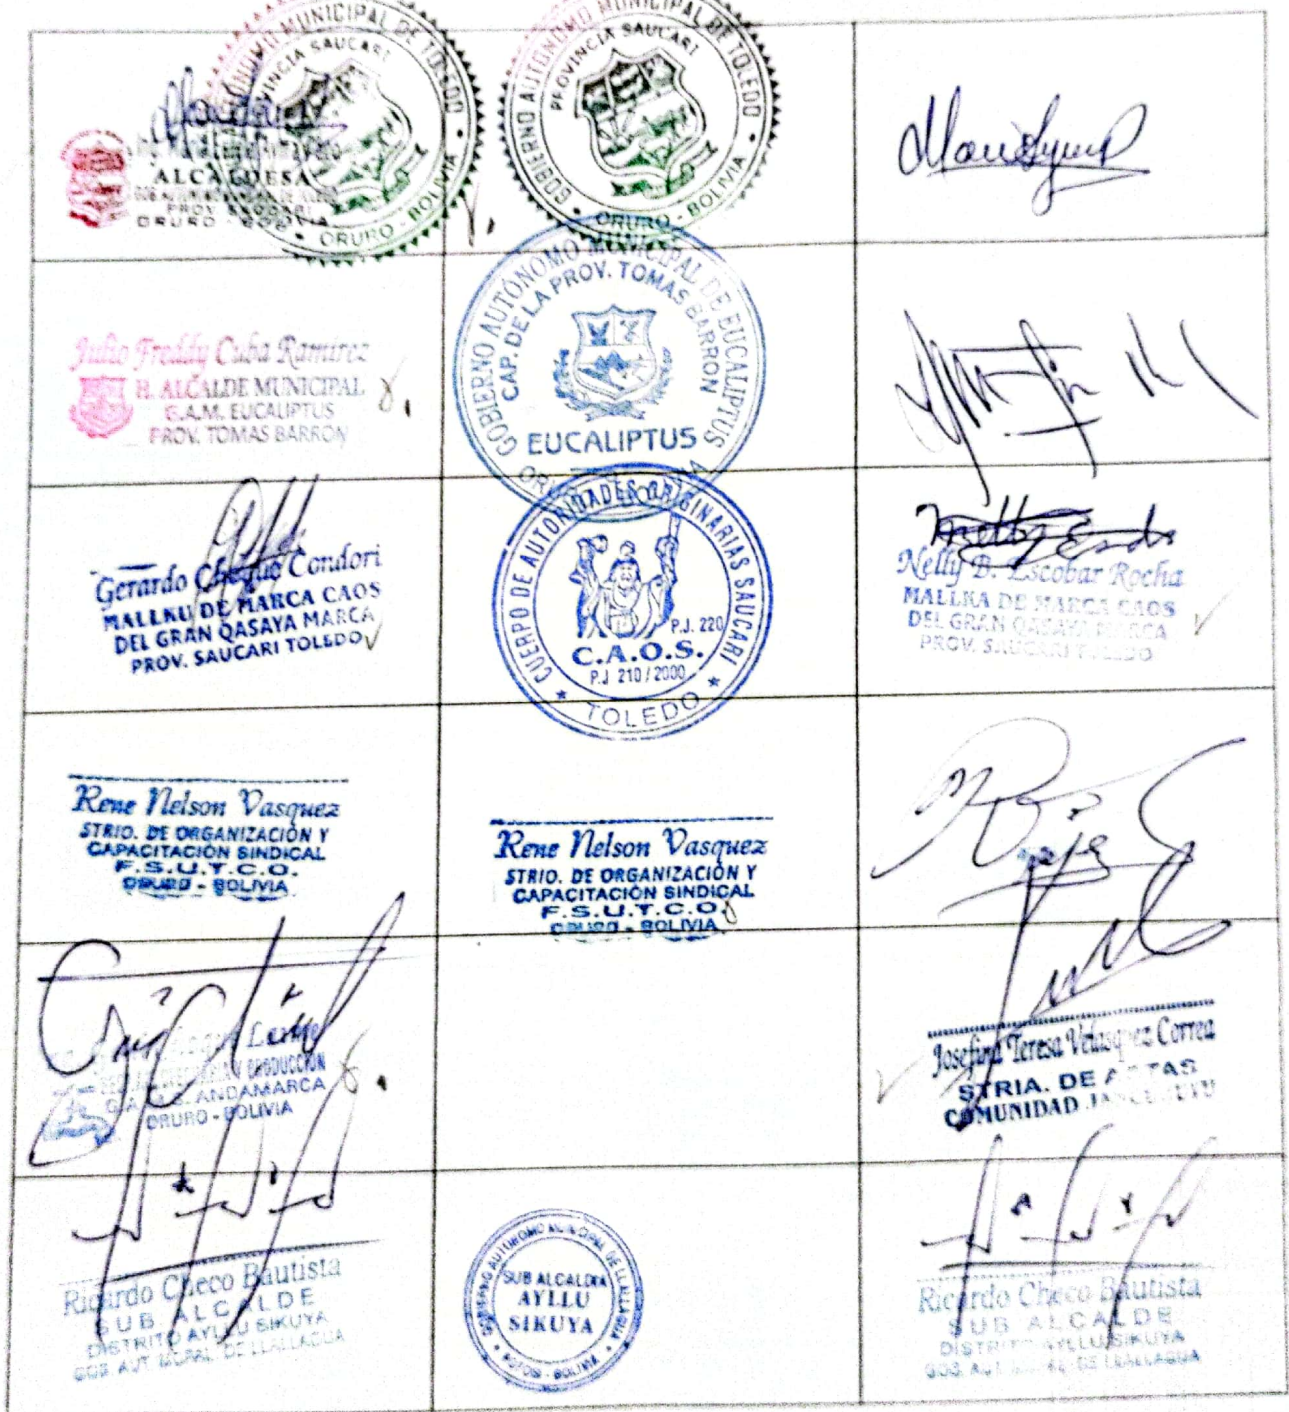 GOBIERNO AUTÓNOMO MUNICIPAL DE TOLEDO
PROVINCIA SAUCARI
ORURO - BOLIVIA
ALCALDESA
PROV. SAUCARI
ORURO - BOLIVIA
GOBIERNO AUTÓNOMO MUNICIPAL DE TOLEDO
PROVINCIA SAUCARI
ORURO - BOLIVIA
Julio Freddy Cuba Ramirez
H. ALCALDE MUNICIPAL
G.A.M. EUCALIPTUS
PROV. TOMAS BARRON
GOBIERNO AUTÓNOMO MUNICIPAL DE EUCALIPTUS
CAP. DE LA PROV. TOMAS BARRON
EUCALIPTUS
Gerardo Choque Condori
MALLKU DE MARCA CAOS
DEL GRAN QASAYA MARCA
PROV. SAUCARI TOLEDO
CUERPO DE AUTORIDADES ORIGINARIAS SAUCARI
P.J. 220
C.A.O.S.
P.J 210 / 2000
TOLEDO
Nelly B. Escobar Rocha
MALLKA DE MARCA CAOS
DEL GRAN QASAYA MARCA
PROV. SAUCARI TOLEDO
Rene Nelson Vasquez
STRIO. DE ORGANIZACIÓN Y
CAPACITACIÓN SINDICAL
F.S.U.T.C.O.
ORURO - BOLIVIA
Rene Nelson Vasquez
STRIO. DE ORGANIZACIÓN Y
CAPACITACIÓN SINDICAL
F.S.U.T.C.O.
ORURO - BOLIVIA
PRODUCCIÓN
ANDAMARCA
ORURO - BOLIVIA
Josefina Teresa Velasquez Correa
STRIA. DE ACTAS
COMUNIDAD
Ricardo Checo Bautista
SUB ALCALDE
DISTRITO AYLLU SIKUYA
GOB. AUT. MUNPAL. DE LLALLAGUA
GOBIERNO AUTÓNOMO MUNICIPAL DE LLALLAGUA
SUB ALCALDIA
AYLLU
SIKUYA
POTOSI - BOLIVIA
Ricardo Checo Bautista
SUB ALCALDE
DISTRITO AYLLU SIKUYA
GOB. AUT. DE LLALLAGUA